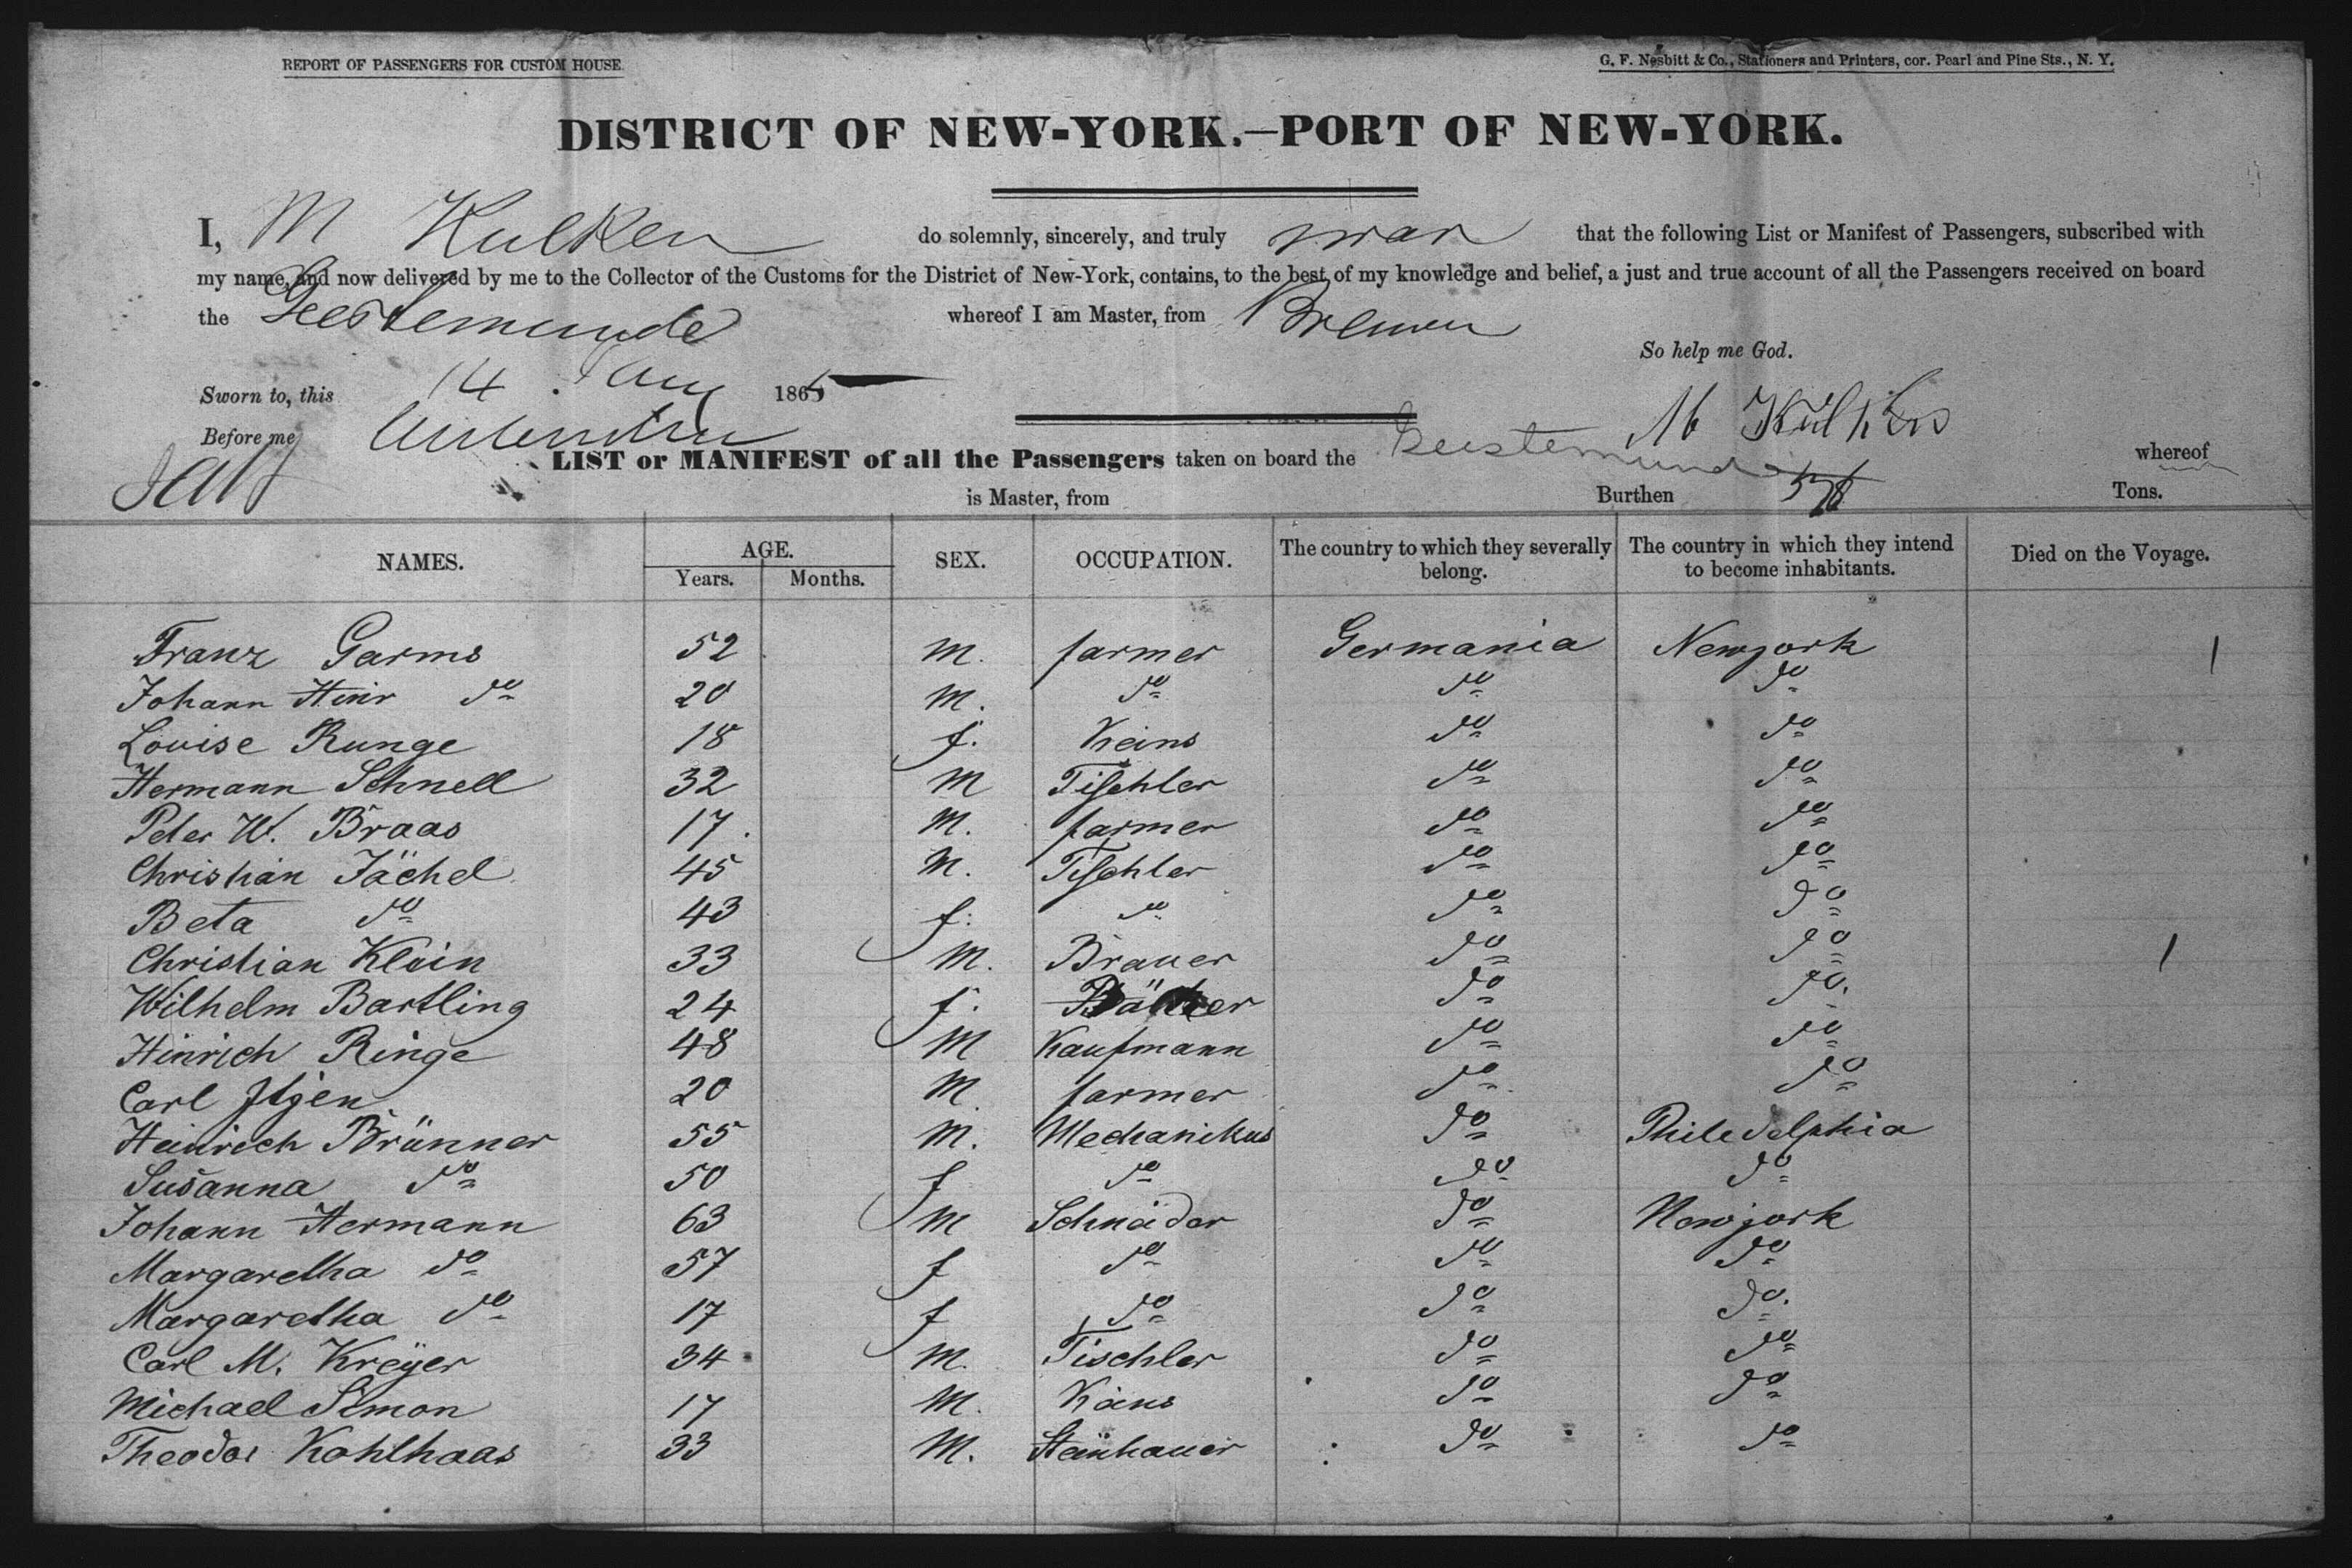 REPORT OF PASSENGERS FOR CUSTOM HOUSE.
G. F. Nesbitt & Co., Stationers and Printers, cor. Pearl and Pine Sts., N. Y.
DISTRICT OF NEW-YORK.—PORT OF NEW-YORK.
I, M Kulken do solemnly, sincerely, and truly swear that the following List or Manifest of Passengers, subscribed with
my name, and now delivered by me to the Collector of the Customs for the District of New-York, contains, to the best of my knowledge and belief, a just and true account of all the Passengers received on board
the Geestemunde whereof I am Master, from Bremen
So help me God.
Sworn to, this 14 1865
Before me M
LIST or MANIFEST of all the Passengers taken on board the Geestemunde whereof
is Master, from Burthen Tons.
NAMES. AGE. SEX. OCCUPATION. The country to which they severally belong. The country in which they intend to become inhabitants. Died on the Voyage.
Years. Months.
Franz Garms 52 M. farmer Germania Newyork 1
Johann Hinr do 20 M. do do do
Louise Runge 18 f. Keins do do
Hermann Schnell 32 M Tischler do do
Peter W. Braas 17. M. farmer do do
Christian Jächel 45 M. Tischler do do
Beta do 43 f. do do do
Christian Klein 33 M. Brauer do do 1
Wilhelm Bartling 24 f. do do.
Hinrich Ringe 48 M Kaufmann do do
Carl Itjen 20 M. farmer do do
Heinrich Brünner 55 M. Mechanikus do Philedelphia
Susanna do 50 f do do do
Johann Hermann 63 M Schneider do Newjork
Margaretha do 57 f do do do
Margaretha do 17 f do do do.
Carl M. Kreÿer 34 M. Tischler do do
Michael Simon 17 M. Keins do do
Theodor Kohlhaas 33 M. Steinhauer do do